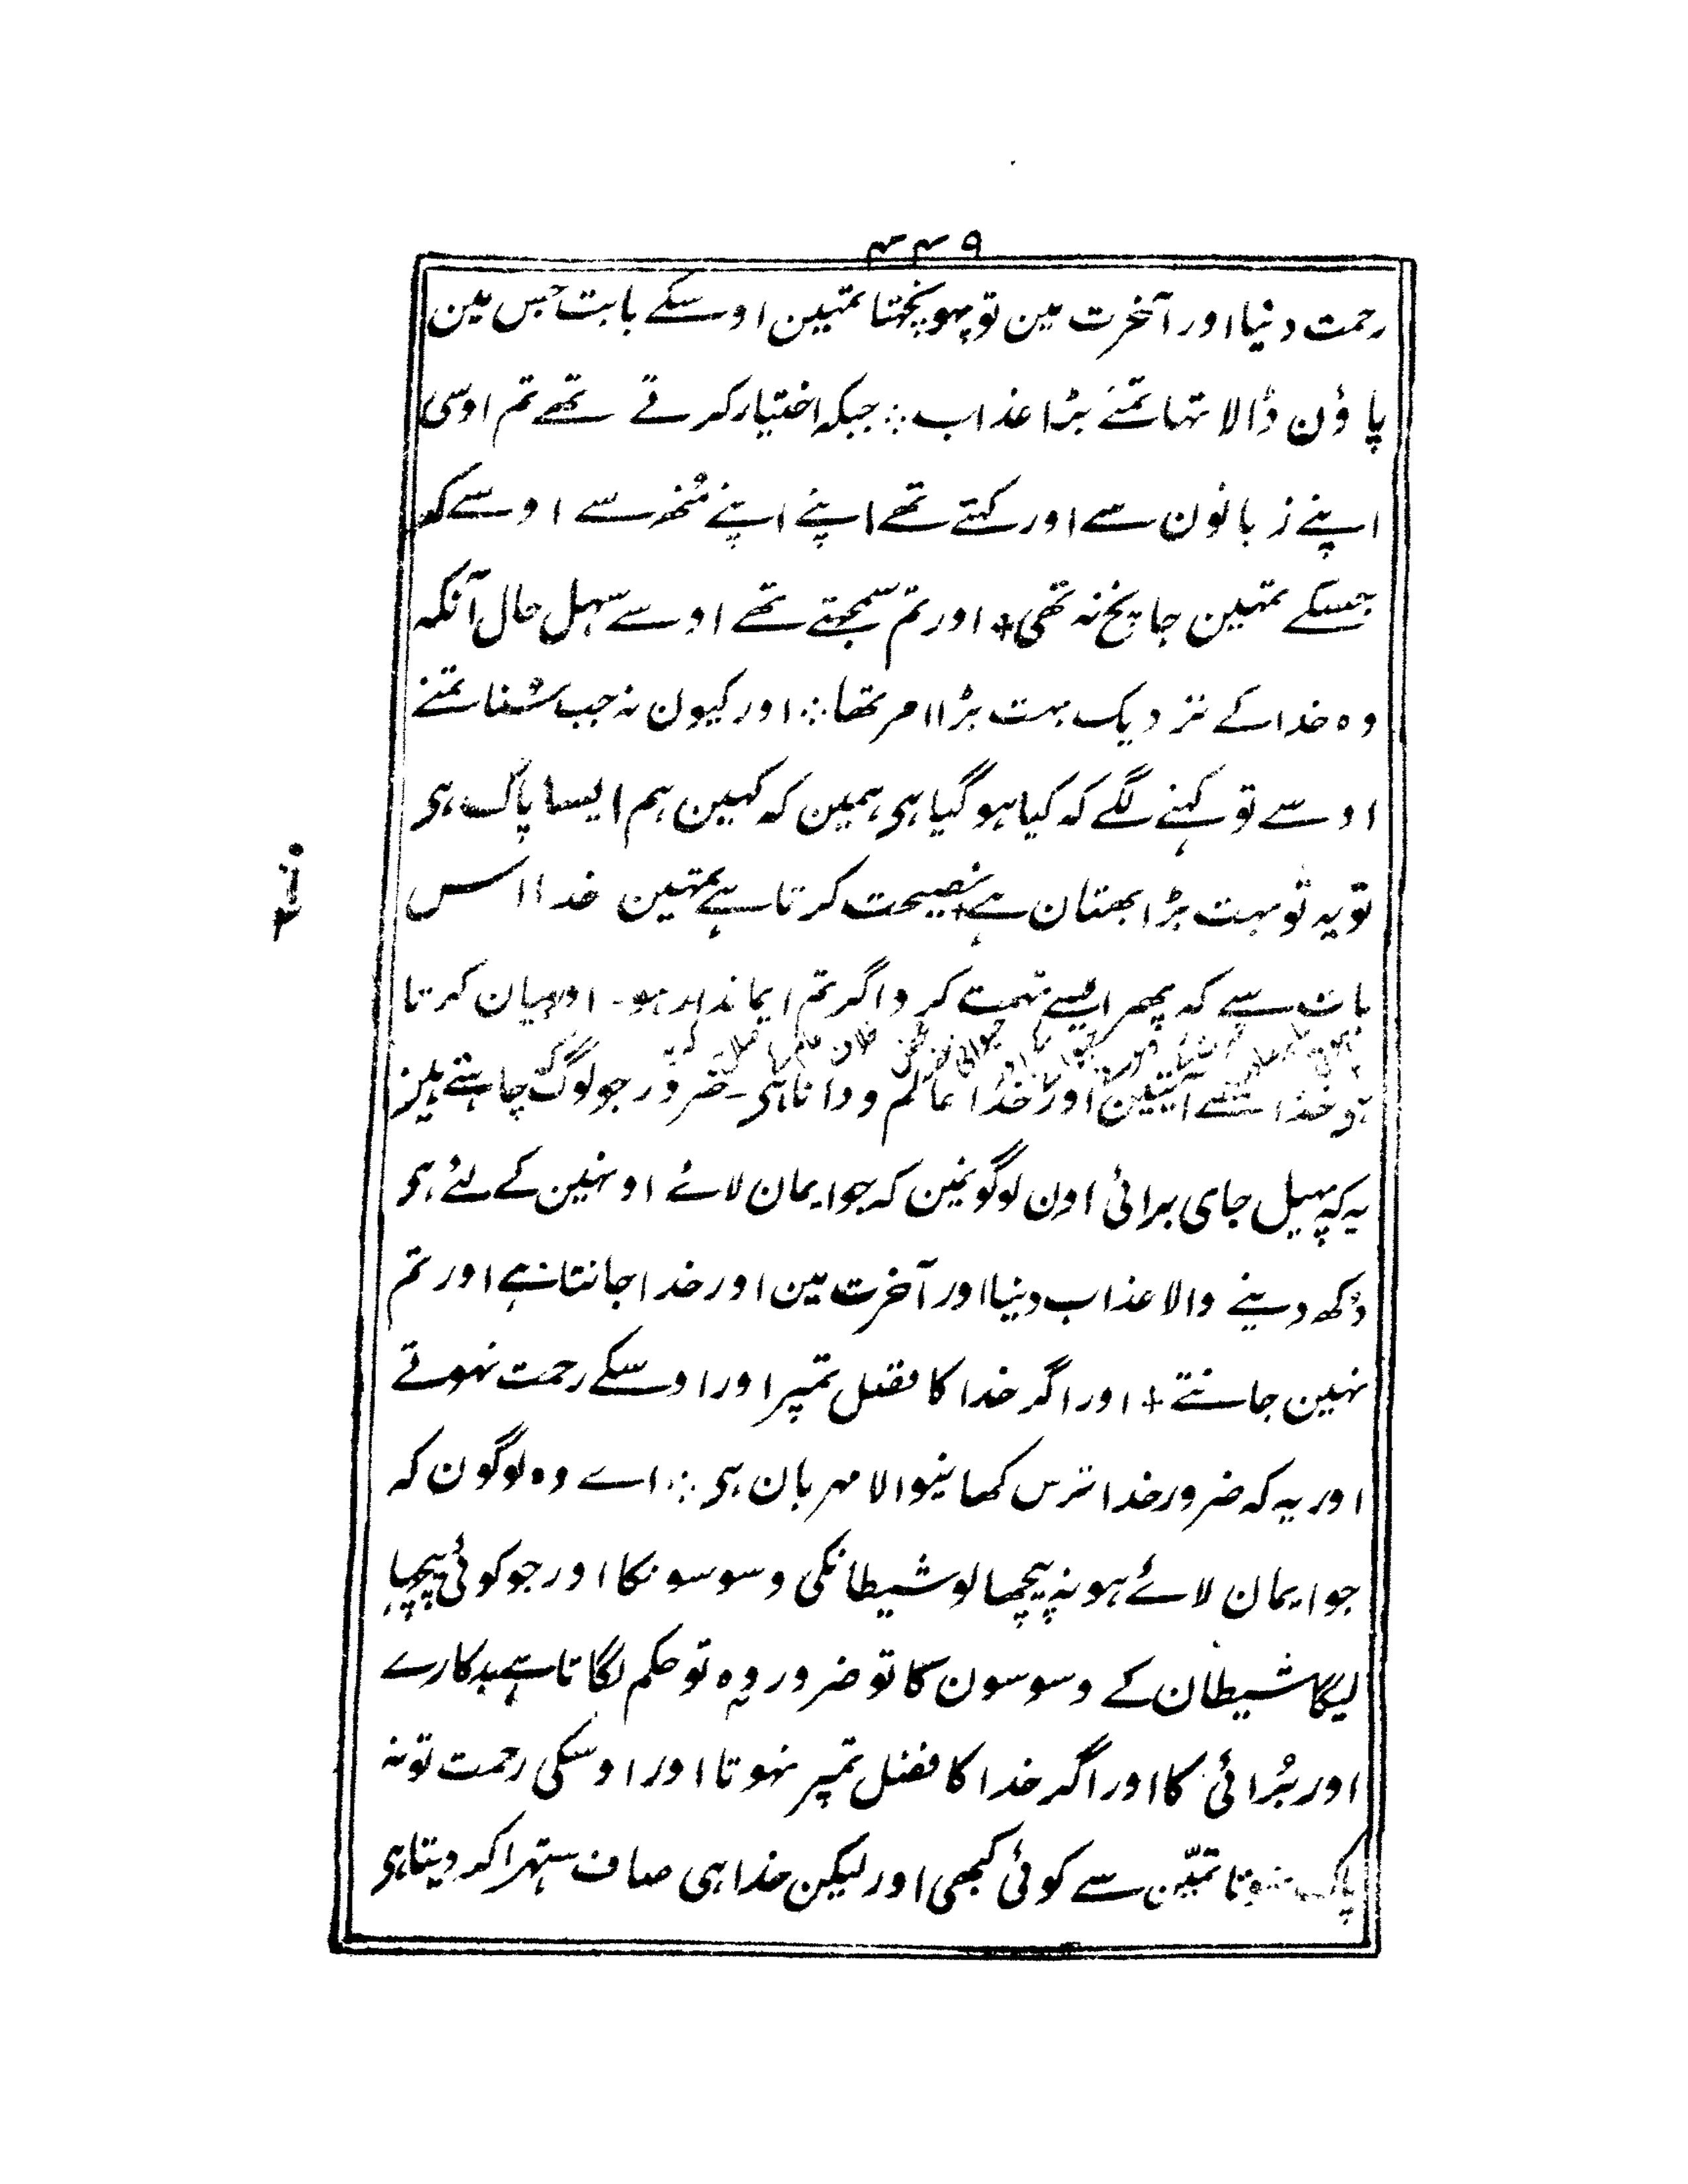 ۴۴۹
رحمت دنیا اور آخرت مین تو پہونچتا تمہین اوسکے بابت جس مین
پاؤن ڈالا تہا تمنے بڑا عذاب ؞ جبکہ اختیار کرتے تھے تم اوسی
اپنے زبانون سے اور کہتے تھے اپنے اپنے مُنھ سے اوسے کہ
جسکے تمہین جانچ نہ تھی + اور تم سمجہتے تھے اوسے سہل حال آنکہ
وہ خدا کے نزدیک بہت بڑا امر تھا ؞ اور کیون نہ جب سُنا تمنے
اوسے تو کہنے لگے کہ کیا ہو گیا ہی ہمین کہ کہین ہم ایسا پاک ہی
تو یہ تو بہت بڑا بھتان ہے + نصیحت کرتا ہے تمہین خدا اس
بات سے کہ پھر ایسے تہمت کرو اگر تم ایماندار ہو - اور بیان کرتا
ہو خدا آیتین اور خدا عالم و دانا ہی - ضرور جو لوگ چاہتے ہین
یہ کہ پہیل جای برائی اون لوگونمین کہ جو ایمان لائے اونہین کے لئے ہی
دُکھ دینے والا عذاب دنیا اور آخرت مین اور خدا جانتا ہے اور تم
نہین جانتے + اور اگر خدا کا فضل تمپر اور اوسکے رحمت نہوتے
اور یہ کہ ضرور خدا ترس کھانیوالا مہربان ہی ؞ اے وہ لوگون کہ
جو ایمان لائے ہو نہ پیچھا لو شیطانکی وسوسونکا اور جو کوئی پیچہا
لیگا شیطان کے وسوسون کا تو ضرور وہ تو حکم لگاتا ہے بدکارے
اور بُرائی کا اور اگر خدا کا فضل تمپر نہوتا اور اوسکی رحمت تو نہ
پاک ہوتا تمین سے کوئی کبھی اور لیکن خدا ہی صاف ستہرا کر دیتا ہی